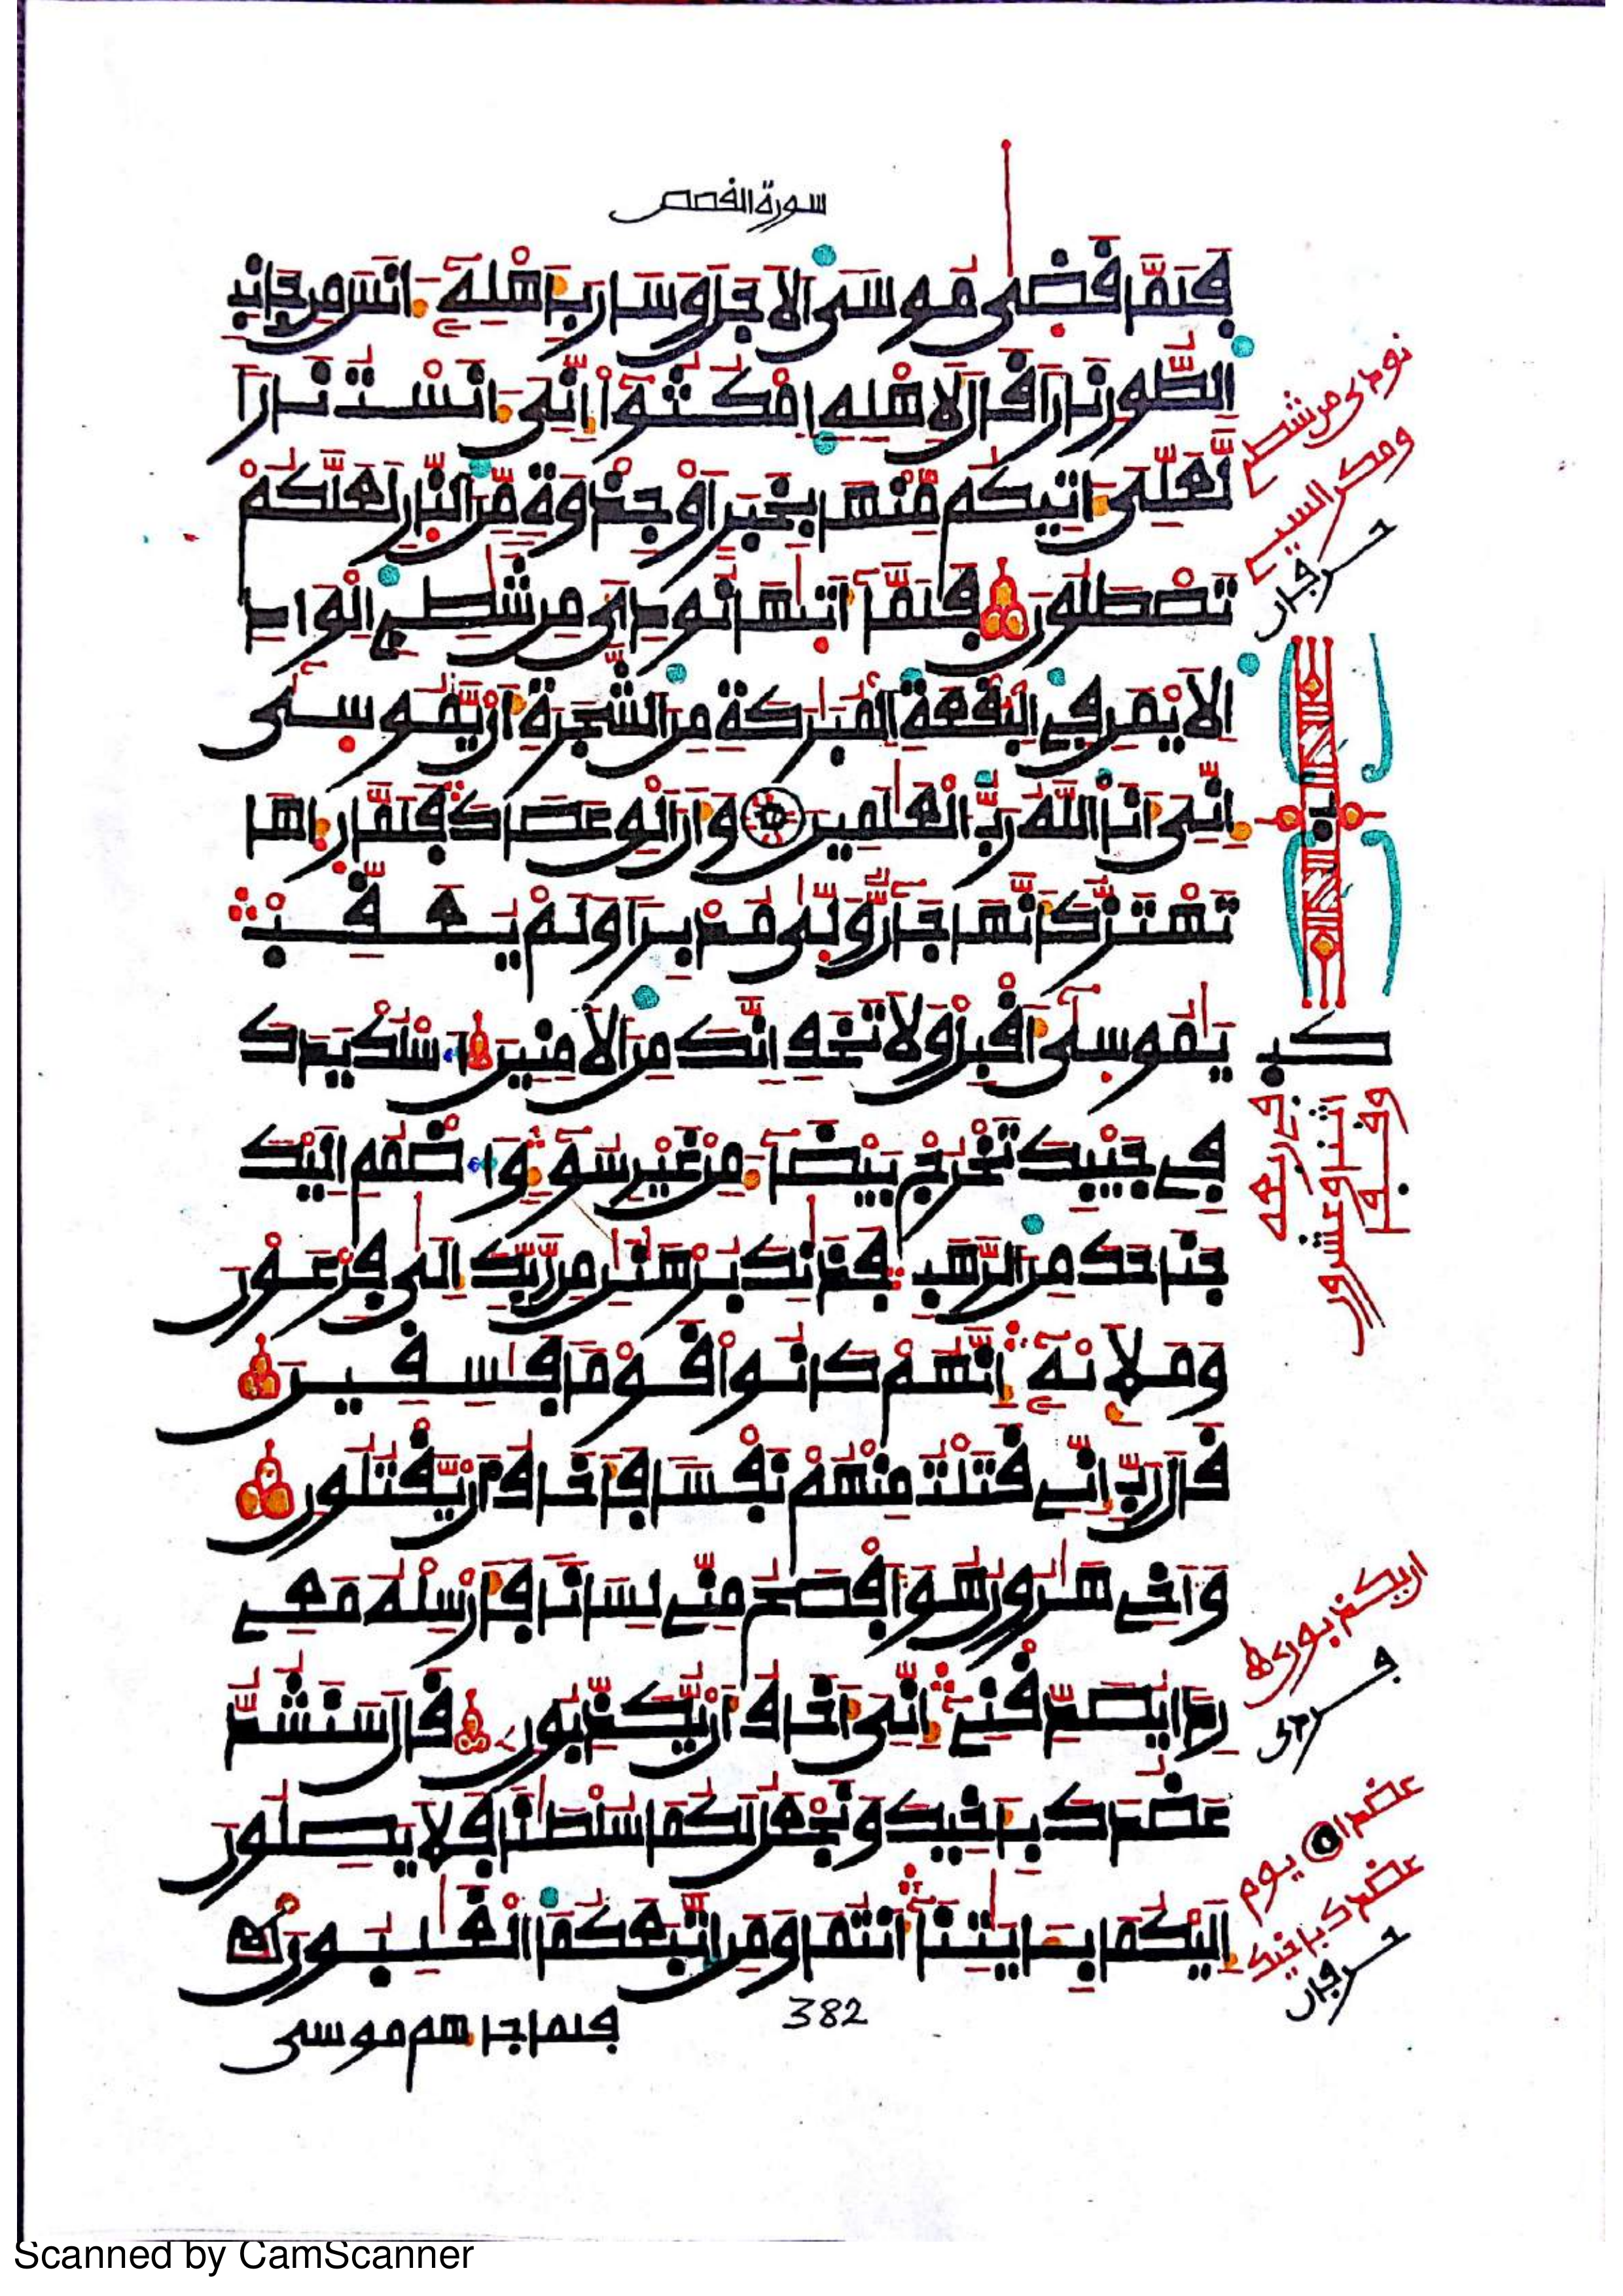 سورة القصص
فَلَمَّا قَضىٰ مُوسَى الاَجَلَ وَسَارَ بِأَهْلِهِۦٓ ءَانَسَ مِن جَانِبِ
اِلطُّورِ نَاراً قَالَ لِأَهْلِهِ اِمْكُثُوٓاْ إِنِّيَ ءَانَسْتُ نَاراً
لَّعَلِّيَ ءَاتِيكُم مِّنْهَا بِخَبَرٍ اَوْ جِذْوَةٍ مِّنَ اَلنَّارِ لَعَلَّكُمْ
تَصْطَلُونَ فَلَمَّآ أَتىٰهَا نُودِىَ مِن شَٰطِےِٕ اِلْوَادِ
اِلَايْمَنِ فِي اِلْبُقْعَةِ اِلْمُبَٰرَكَةِ مِنَ اَلشَّجَرَةِ أَنْ يَّٰمُوسىٰٓ
إِنِّيَ أَنَا اَللَّهُ رَبُّ اُلْعَٰلَمِينَ وَأَنَ اَلْقِ عَصَاكَ فَلَمَّا رَءاهَا
تَهْتَزُّ كَأَنَّهَا جَآنٌّ وَلّىٰ مُدْبِراً وَلَمْ يُعَقِّبْ
يَٰمُوسىٰٓ أَقْبِلْ وَلَا تَخَفِ اِنَّكَ مِنَ اَلَامِنِينَ اَسْلُكْ يَدَكَ
فِي جَيْبِكَ تَخْرُجْ بَيْضَآءَ مِنْ غَيْرِ سُوٓءٍ وَاضْمُمِ اِلَيْكَ
جَنَاحَكَ مِنَ اَلرَّهَبِ فَذَٰنِكَ بُرْهَٰنَٰنِ مِن رَّبِّكَ إِلىٰ فِرْعَوْنَ
وَمَلَإِيْهِۦٓ إِنَّهُمْ كَانُواْ قَوْماً فَٰسِقِينَ
قَالَ رَبِّ إِنِّے قَتَلْتُ مِنْهُمْ نَفْساً فَأَخَافُ أَنْ يَّقْتُلُونِ
وَأَخِے هَٰرُونُ هُوَ أَفْصَحُ مِنِّے لِسَاناً فَأَرْسِلْهُ مَعِے
رِداً يُصَدِّقْنِےٓ إِنِّيَ أَخَافُ أَنْ يُّكَذِّبُونِ قَالَ سَنَشُدُّ
عَضُدَكَ بِأَخِيكَ وَنَجْعَلُ لَكُمَا سُلْطَٰناً فَلَا يَصِلُونَ
إِلَيْكُمَا بِـَٔايَٰتِنَآ أَنتُمَا وَمَنِ اِتَّبَعَكُمَا اَلْغَٰلِبُونَ
382
فلما جاءهم موسى
نودى من شطے
ومكر السيے
حرفان
كب
يوم
عضدك باخيك
حرفان
Scanned by CamScanner